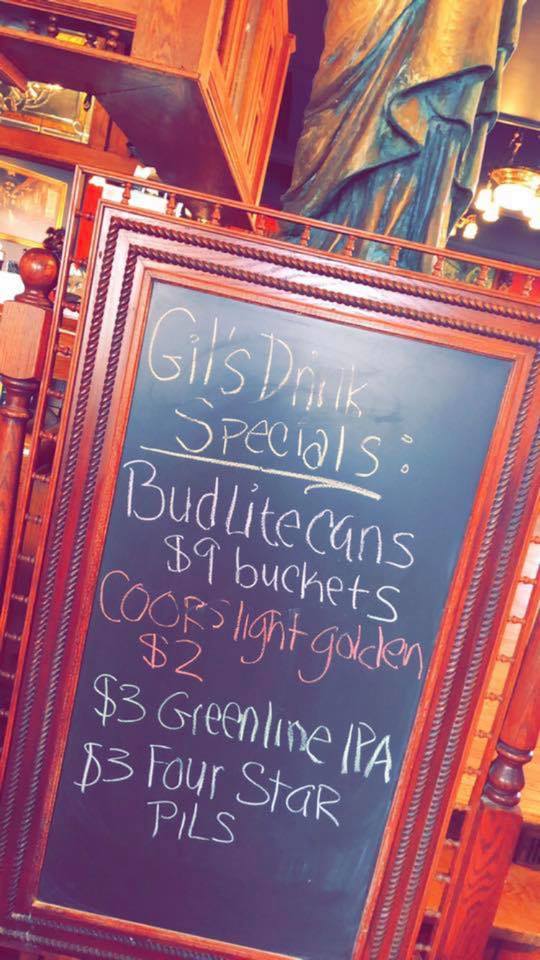 Gil's Drink
Specials:
Bud Lite cans
$9 buckets
COORS light golden
$2
$3 Greenline IPA
$3 Four Star
PILS